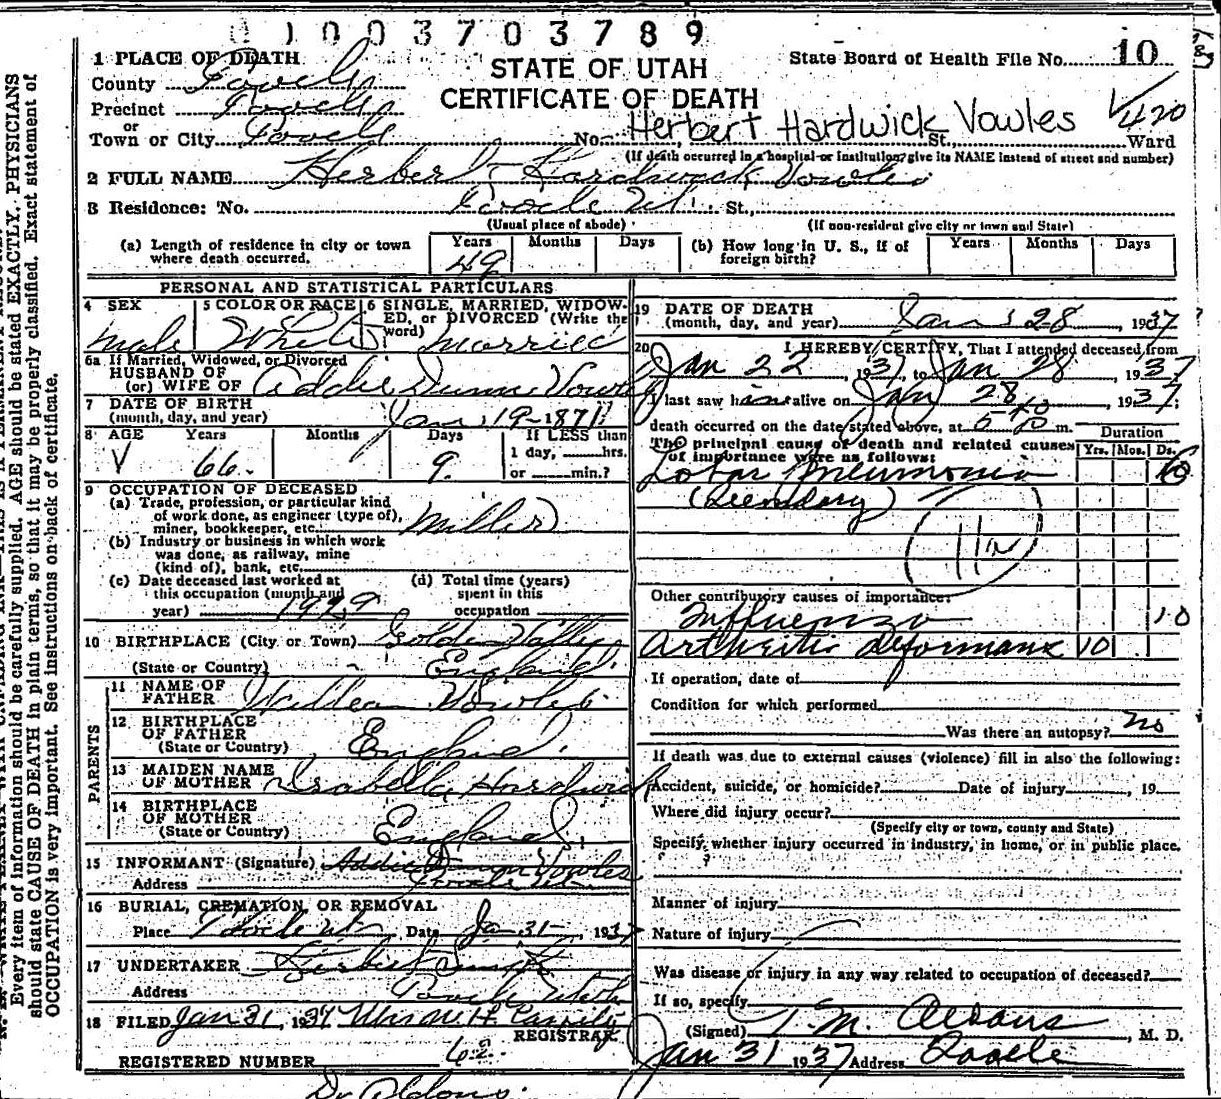 0 1 0 0 3 7 0 3 7 8 9
1 PLACE OF DEATH
STATE OF UTAH
CERTIFICATE OF DEATH
State Board of Health File No. 10
County Tooele
Precinct Tooele
or
Town or City Tooele No. St., Ward
Herbert Hardwick Vowles
420
(If death occurred in a hospital or institution, give its NAME instead of street and number)
2 FULL NAME Herbert Hardwick Vowles
3 Residence: No. Tooele Ut. St.,
(Usual place of abode)
(If non-resident give city or town and State)
(a) Length of residence in city or town where death occurred. Years 49 Months Days
(b) How long in U. S., if of foreign birth? Years Months Days
PERSONAL AND STATISTICAL PARTICULARS
4 SEX Male
5 COLOR OR RACE White
6 SINGLE, MARRIED, WIDOWED, or DIVORCED (Write the word) Married
6a If Married, Widowed, or Divorced
HUSBAND OF
(or) WIFE OF Addie Dunn Vowles
7 DATE OF BIRTH
(month, day, and year) Jan. 19-1871
8 AGE Years 66 Months Days 9 If LESS than 1 day, hrs. or min.?
9 OCCUPATION OF DECEASED
(a) Trade, profession, or particular kind
of work done, as engineer (type of),
miner, bookkeeper, etc. Miller
(b) Industry or business in which work
was done, as railway, mine
(kind of), bank, etc.
(c) Date deceased last worked at
this occupation (month and
year) 1929
(d) Total time (years)
spent in this
occupation
10 BIRTHPLACE (City or Town) Golden Valley
(State or Country) England
PARENTS
11 NAME OF FATHER William Vowles
12 BIRTHPLACE OF FATHER
(State or Country) England
13 MAIDEN NAME OF MOTHER Isabella Hardwick
14 BIRTHPLACE OF MOTHER
(State or Country) England
15 INFORMANT (Signature) Addie Dunn Vowles
Address Tooele Ut
16 BURIAL, CREMATION, OR REMOVAL
Place Tooele Ut Date Jan 31 1937
17 UNDERTAKER Herbert
Address Tooele Utah
18 FILED Jan 31, 1937
REGISTRAR
REGISTERED NUMBER 62
19 DATE OF DEATH
(month, day, and year) Jan 28, 1937
20 I HEREBY CERTIFY, That I attended deceased from
Jan 22, 1937, to Jan 28, 1937
I last saw him alive on Jan 28, 1937;
death occurred on the date stated above, at 5 40 m.
The principal cause of death and related causes
of importance were as follows:
Duration
Yrs. Mos. Ds.
Lobar Pneumonia 6
(Secondary)
11a
Other contributory causes of importance:
Influenza 10
Arthritis deformans 10
If operation, date of
Condition for which performed
Was there an autopsy? no
If death was due to external causes (violence) fill in also the following:
Accident, suicide, or homicide? Date of injury , 19
Where did injury occur?
(Specify city or town, county and State)
Specify whether injury occurred in industry, in home, or in public place.
Manner of injury
Nature of injury
Was disease or injury in any way related to occupation of deceased?
If so, specify
(Signed) T. M. Aldous, M. D.
Jan 31 1937 Address Tooele
Dr Aldous.
Every item of information should be carefully supplied. AGE should be stated EXACTLY. PHYSICIANS
should state CAUSE OF DEATH in plain terms, so that it may be properly classified. Exact statement of
OCCUPATION is very important. See instructions on back of certificate.